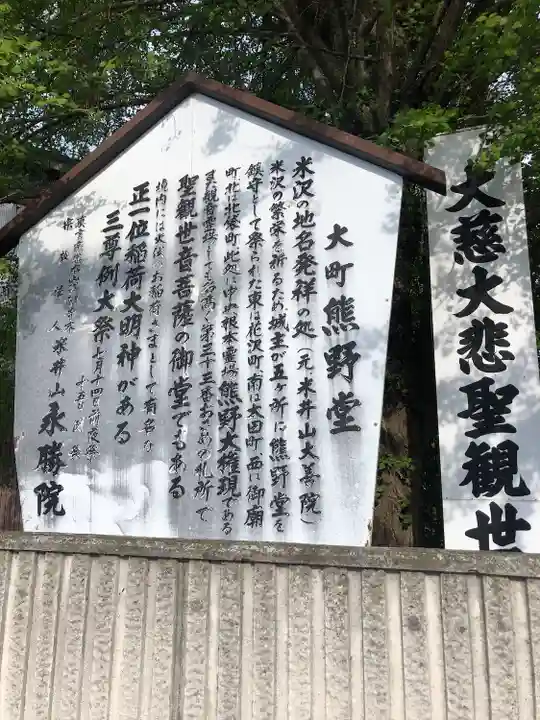 大慈大悲聖観世
大町熊野堂
米沢の地名発祥の処(元米井山大善院)
米沢の繁栄を祈るため城主が五ヶ所に熊野堂を
鎮守として祭られた東は花沢町南は太田町西に御廟
町北は北袋町此処に中央根本霊場熊野大権現である
また観音霊場としても名高く第三十三番おさめの札所で
聖観世音菩薩の御堂でもある
境内には火伏、お稲荷さまとして有名な
正一位稲荷大明神がある
三尊例大祭 七月十四日前夜祭
十五日例祭
米井山永勝院